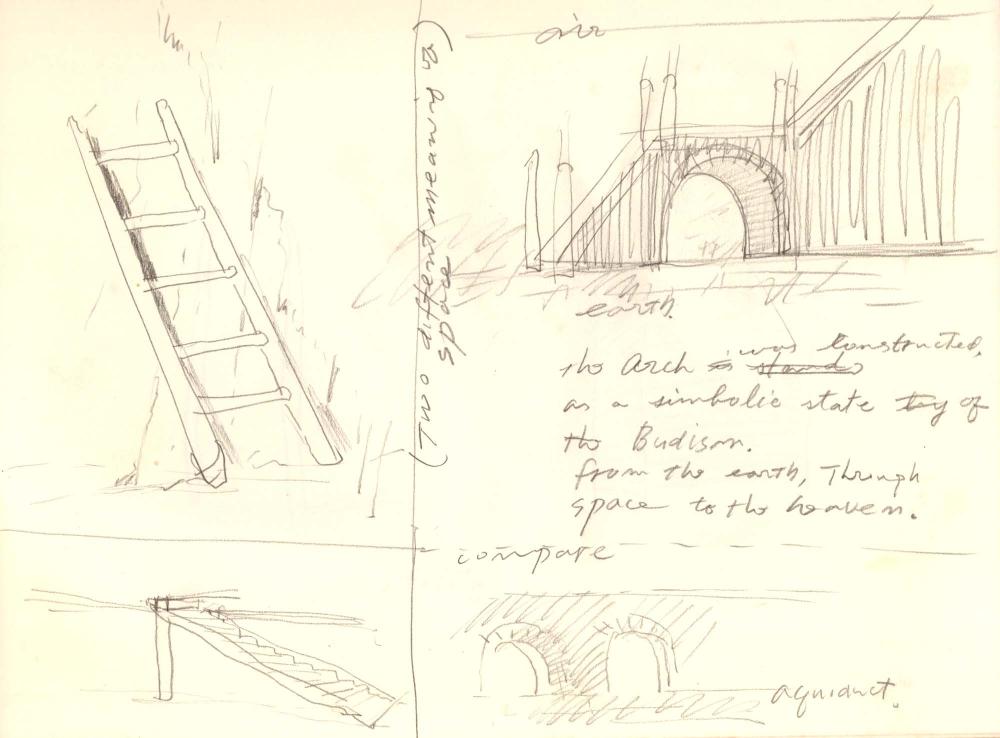 air
(Two different meaning on
space)
earth.
the Arch is stands was constructed,
as a simbolic state by of
the Budism.
from the earth, Through
space to the heaven.
compare
aquiduct.